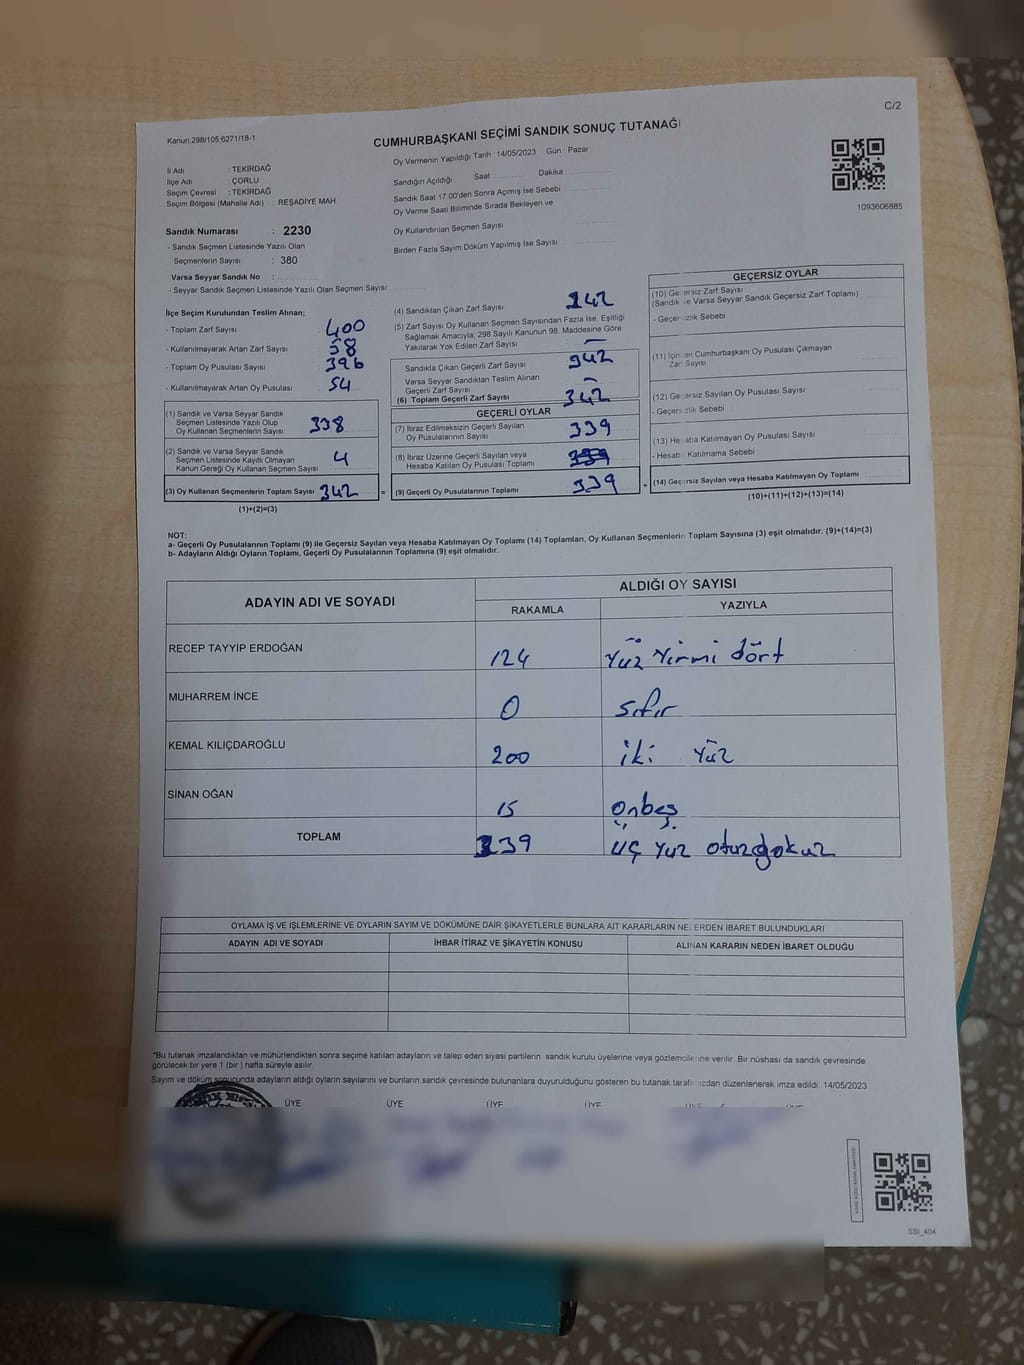 C/2
Kanun:298/105:6271/18-1
CUMHURBAŞKANI SEÇİMİ SANDIK SONUÇ TUTANAĞI
Oy Vermenin Yapıldığı Tarih :14/05/2023 Gün : Pazar
İl Adı : TEKİRDAĞ
İlçe Adı : ÇORLU
Seçim Çevresi : TEKİRDAĞ
Seçim Bölgesi (Mahalle Adı) : REŞADİYE MAH
Sandığın Açıldığı Saat : Dakika :
Sandık Saat 17.00'den Sonra Açımış İse Sebebi :
Oy Verme Saati Bitiminde Sırada Bekleyen ve
Oy Kullandırılan Seçmen Sayısı :
Birden Fazla Sayım Döküm Yapılmış İse Sayısı :
1093606885
Sandık Numarası : 2230
- Sandık Seçmen Listesinde Yazılı Olan
Seçmenlerin Sayısı : 380
Varsa Seyyar Sandık No :
- Seyyar Sandık Seçmen Listesinde Yazılı Olan Seçmen Sayısı:
İlçe Seçim Kurulundan Teslim Alınan;
- Toplam Zarf Sayısı 400
- Kullanılmayarak Artan Zarf Sayısı 58
- Toplam Oy Pusulası Sayısı 396
- Kullanılmayarak Artan Oy Pusulası 54
(1) Sandık ve Varsa Seyyar Sandık
Seçmen Listesinde Yazılı Olup
Oy Kullanan Seçmenlerin Sayısı 338
(2) Sandık ve Varsa Seyyar Sandık
Seçmen Listesinde Kayıtlı Olmayan
Kanun Gereği Oy Kullanan Seçmen Sayısı 4
(3) Oy Kullanan Seçmenlerin Toplam Sayısı 342 =
(1)+(2)=(3)
(4) Sandıktan Çıkan Zarf Sayısı 342
(5) Zarf Sayısı Oy Kullanan Seçmen Sayısından Fazla İse, Eşitliği
Sağlamak Amacıyla; 298 Sayılı Kanunun 98. Maddesine Göre
Yakılarak Yok Edilen Zarf Sayısı –
Sandıkla Çıkan Geçerli Zarf Sayısı 342
Varsa Seyyar Sandıktan Teslim Alınan
Geçerli Zarf Sayısı –
(6) Toplam Geçerli Zarf Sayısı 342
GEÇERLİ OYLAR
(7) İtiraz Edilmeksizin Geçerli Sayılan
Oy Pusulalarının Sayısı 339
(8) İtiraz Üzerine Geçerli Sayılan veya
Hesaba Katılan Oy Pusulası Toplamı
(9) Geçerli Oy Pusulalarının Toplamı 339 +
GEÇERSİZ OYLAR
(10) Geçersiz Zarf Sayısı
(Sandık ve Varsa Seyyar Sandık Geçersiz Zarf Toplamı)
- Geçersizlik Sebebi
(11) İçinden Cumhurbaşkanı Oy Pusulası Çıkmayan
Zarf Sayısı
(12) Geçersiz Sayılan Oy Pusulası Sayısı
- Geçersizlik Sebebi
(13) Hesaba Katılmayan Oy Pusulası Sayısı
- Hesaba Katılmama Sebebi
(14) Geçersiz Sayılan veya Hesaba Katılmayan Oy Toplamı
(10)+(11)+(12)+(13)=(14)
NOT:
a- Geçerli Oy Pusulalarının Toplamı (9) ile Geçersiz Sayılan veya Hesaba Katılmayan Oy Toplamı (14) Toplamları, Oy Kullanan Seçmenlerin Toplam Sayısına (3) eşit olmalıdır. (9)+(14)=(3)
b- Adayların Aldığı Oyların Toplamı, Geçerli Oy Pusulalarının Toplamına (9) eşit olmalıdır.
ADAYIN ADI VE SOYADI ALDIĞI OY SAYISI
RAKAMLA YAZIYLA
RECEP TAYYİP ERDOĞAN 124 Yüz Yirmi dört
MUHARREM İNCE 0 sıfır
KEMAL KILIÇDAROĞLU 200 iki Yüz
SİNAN OĞAN 15 onbeş
TOPLAM 339 üç yüz otuzdokuz
OYLAMA İŞ VE İŞLEMLERİNE VE OYLARIN SAYIM VE DÖKÜMÜNE DAİR ŞİKAYETLERLE BUNLARA AİT KARARLARIN NELERDEN İBARET BULUNDUKLARI
ADAYIN ADI VE SOYADI İHBAR İTİRAZ VE ŞİKAYETİN KONUSU ALINAN KARARIN NEDEN İBARET OLDUĞU
*Bu tutanak imzalandıktan ve mühürlendikten sonra seçime katılan adayların ve talep eden siyasi partilerin sandık kurulu üyelerine veya gözlemcilerine verilir. Bir nüshası da sandık çevresinde
görülecek bir yere 1 (bir ) hafta süreyle asılır.
Sayım ve döküm sonucunda adayların aldığı oyların sayılarını ve bunların sandık çevresinde bulunanlara duyurulduğunu gösteren bu tutanak tarafımızdan düzenlenerek imza edildi. 14/05/2023
ÜYE ÜYE ÜYE ÜYE ÜYE ÜYE
SSI_404